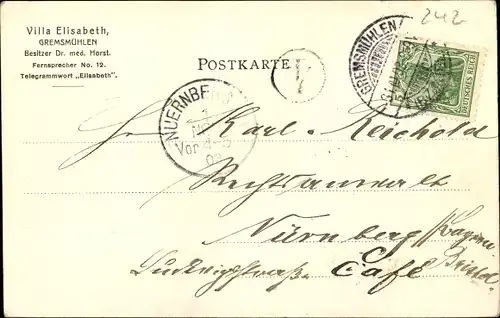 Villa Elisabeth,
GREMSMÜHLEN
Besitzer Dr. med. Horst.
Fernsprecher No. 12.
Telegrammwort „Elisabeth".
242
POSTKARTE
GREMSMÜHLEN
DEUTSCHES REICH
NUERNBERG
Vor 4-5
03
Herrn Karl Reichold
Rechtsanwalt
Nürnberg /Bayern
Ludwigstraße Café Bristol